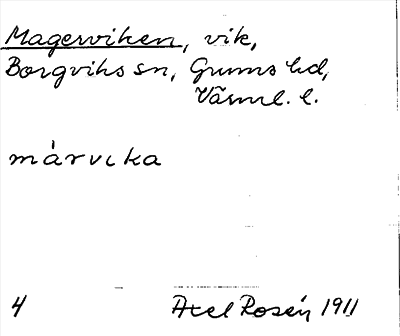 Magerviken, vik,
Borgviks sn, Grums hd,
Värml. l.
mårvika
4 Axel Rosén 1911